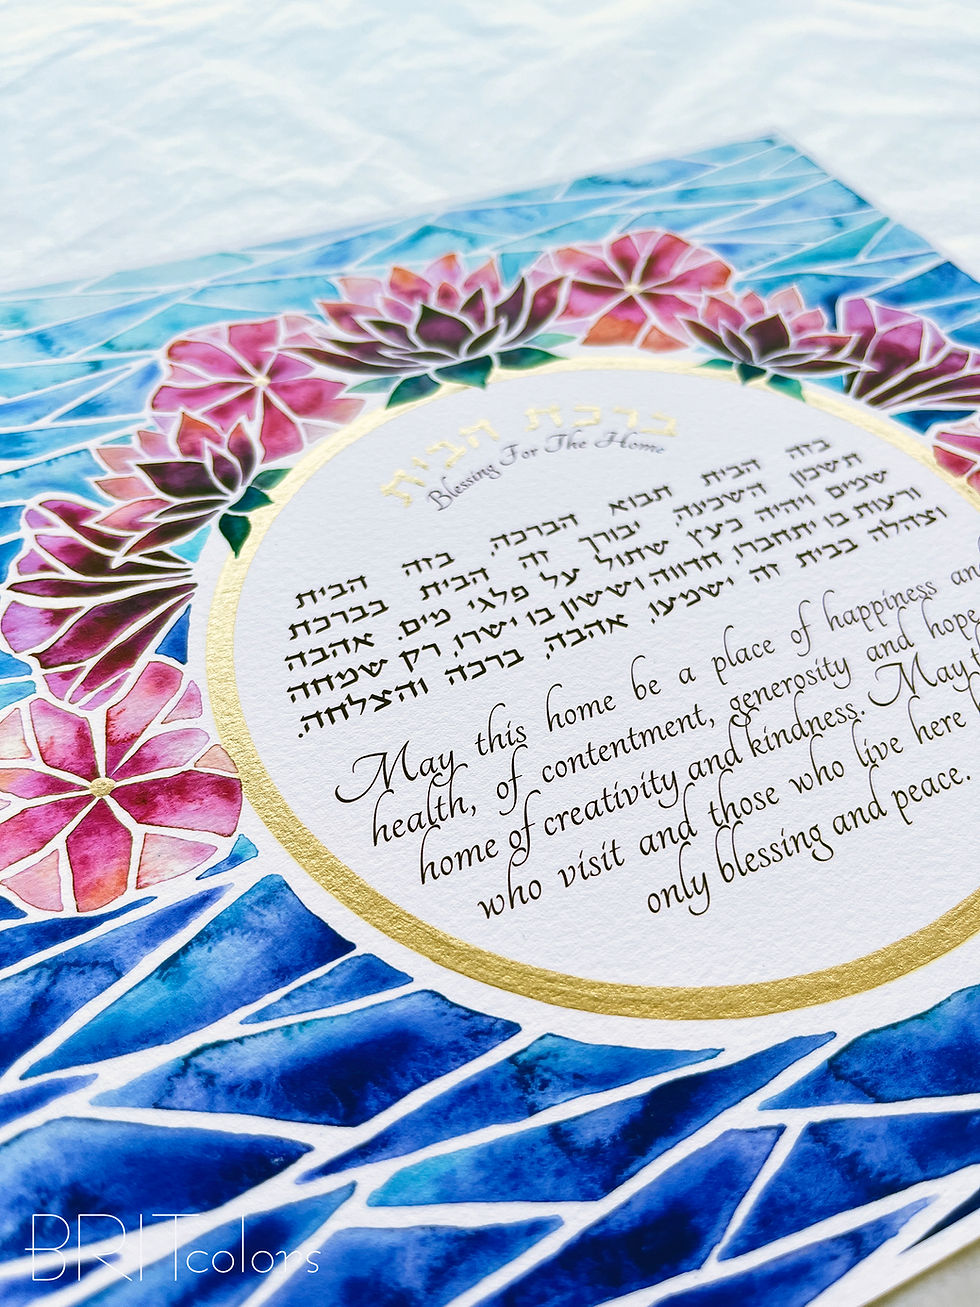 ברכת הבית
Blessing For The Home
בזה הבית תבוא הברכה, בזה הבית
תשכון השכינה, יבורך זה הבית בברכת
שמים ויהיה כעץ שתול על פלגי מים. אהבה
ורעות בו יתחברו, חדווה וששון בו ישרו, רק שמחה
וצהלה בבית זה ישמעו, אהבה, ברכה והצלחה.
May this home be a place of happiness
health, of contentment, generosity and hope
home of creativity and kindness. May
who visit and those who live here
only blessing and peace.
BRITcolors